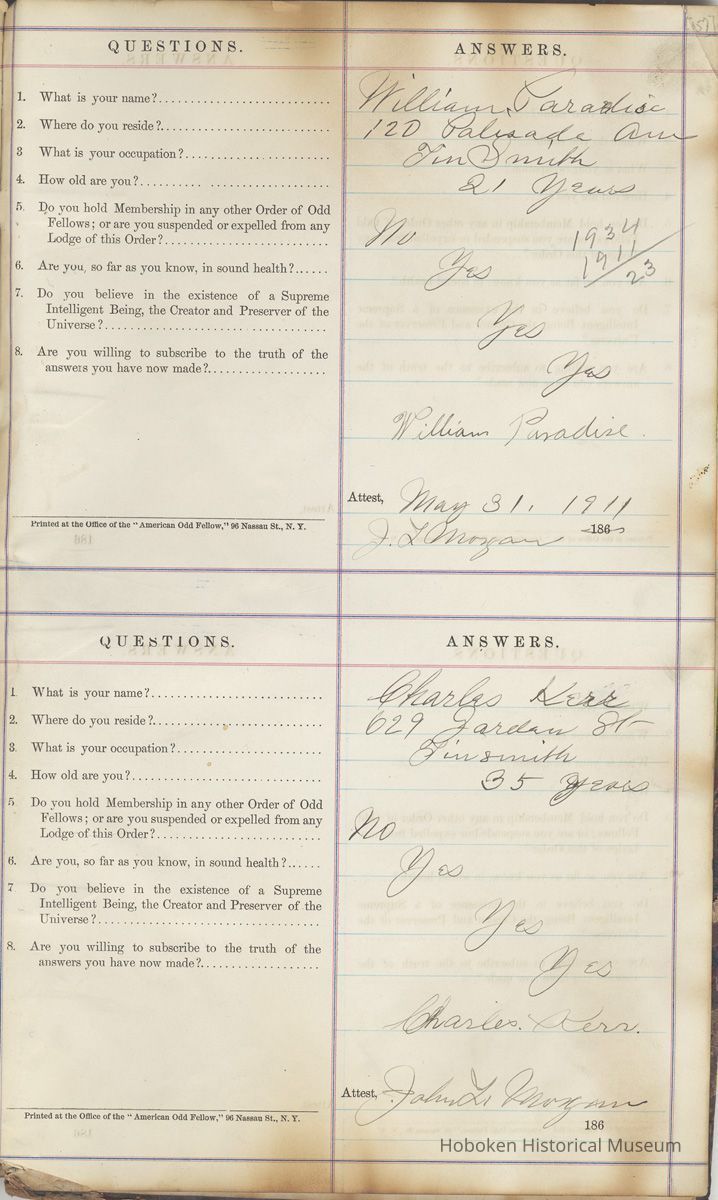 151
QUESTIONS. ANSWERS.
1. What is your name? William Paradise
2. Where do you reside? 120 Palisade Ave
3 What is your occupation? TinSmith
4. How old are you? 21 Years
5. Do you hold Membership in any other Order of Odd
Fellows; or are you suspended or expelled from any
Lodge of this Order? No
1934
1911
23
6. Are you, so far as you know, in sound health? Yes
7. Do you believe in the existence of a Supreme
Intelligent Being, the Creator and Preserver of the
Universe? Yes
8. Are you willing to subscribe to the truth of the
answers you have now made? Yes
William Paradise.
Attest, May 31, 1911
Printed at the Office of the "American Odd Fellow," 96 Nassau St., N. Y.
J. L Morgan 186
QUESTIONS. ANSWERS.
1. What is your name? Charles Kerr
2. Where do you reside? 629 Jordan St
3. What is your occupation? Tinsmith
4. How old are you? 35 Years
5. Do you hold Membership in any other Order of Odd
Fellows; or are you suspended or expelled from any
Lodge of this Order? No
6. Are you, so far as you know, in sound health? Yes
7. Do you believe in the existence of a Supreme
Intelligent Being, the Creator and Preserver of the
Universe? Yes
8. Are you willing to subscribe to the truth of the
answers you have now made? Yes
Charles. Kerr.
Attest, John L. Morgan
Printed at the Office of the "American Odd Fellow," 96 Nassau St., N. Y.
186
Hoboken Historical Museum